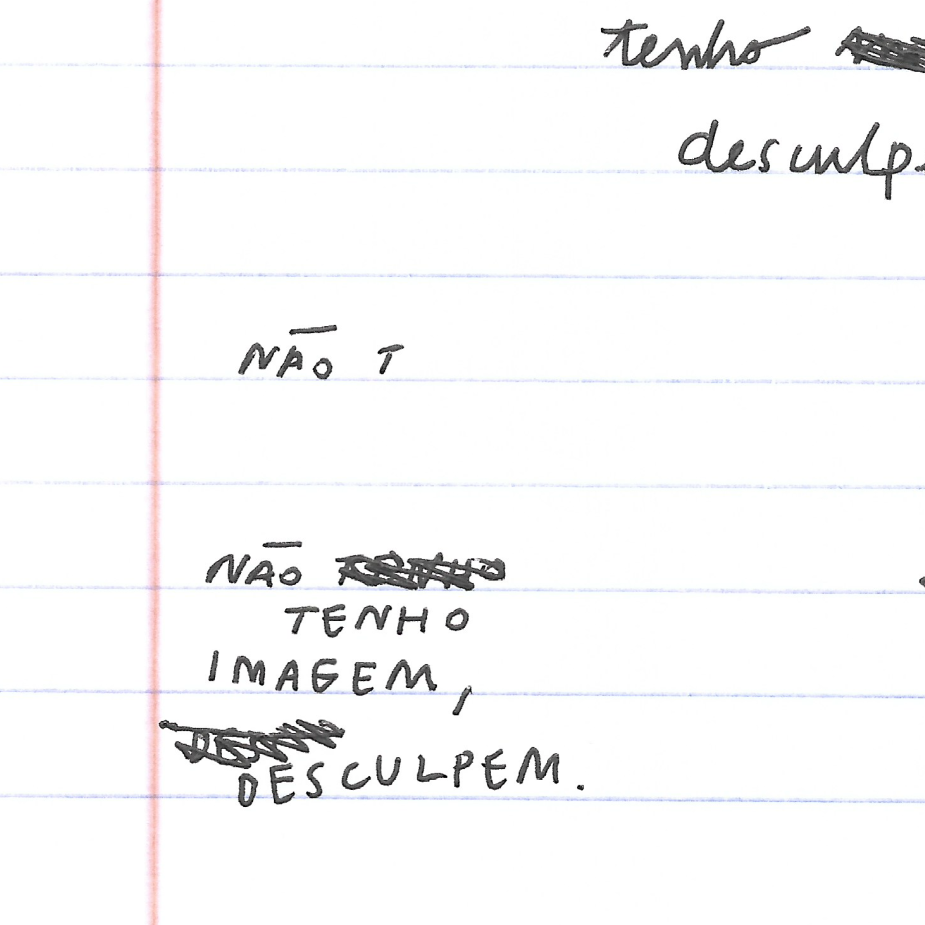 tenho
desculp
NÃO T
NÃO
TENHO
IMAGEM,
DESCULPEM.